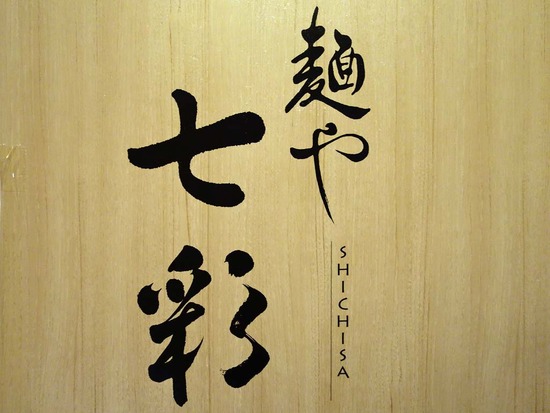 麺や
七彩
SHICHISA